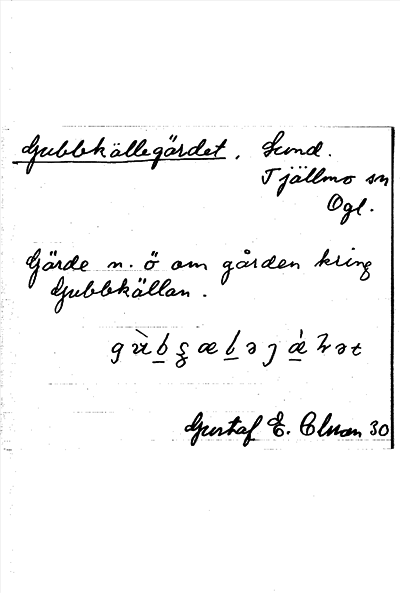 Gubbkällegärdet. Sund.
Tjällmo sn
Ögl.
Gärde n. ö om gården kring
Gubbkällan.
Gustaf E. Olman 30